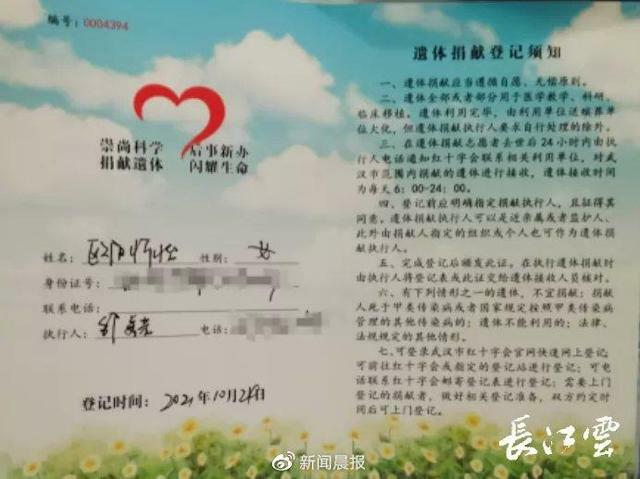 编号：0004394
崇尚科学 后事新办
捐献遗体 闪耀生命
姓名： 性别：女
身份证号：
联系电话：
执行人： 电话：
登记时间：2021年10月2日
遗体捐献登记须知
一、遗体捐献应当遵循自愿、无偿原则。
二、遗体全部或者部分用于医学教学、科研、
临床移植。遗体利用完毕，由利用单位送殡葬单
位火化，但遗体捐献执行人要求自行处理的除外。
三、在遗体捐献志愿者去世后24小时内由执
行人电话通知红十字会联系相关利用单位，对武
汉市范围内捐献的遗体进行接收，遗体接收时间
为每天6：00-24：00。
四、登记前应明确指定捐献执行人，且征得其
同意。遗体捐献执行人可以是近亲属或者监护人、
此外由捐献人指定的组织或个人也可作为遗体捐
献执行人。
五、完成登记后颁发此证。在执行遗体捐献时
由执行人将登记表或此证交给遗体接收人员核对。
六、有下列情形之一的遗体，不宜捐献：捐献
人死于甲类传染病或者国家规定按照甲类传染病
管理的其他传染病的；遗体不能利用的；法律、
法规规定的其他情形。
七、可登录武汉市红十字会官网快速网上登记；
可前往红十字会或指定的登记站进行登记；可电
话联系红十字会邮寄登记表进行登记；需要上门
登记的捐献者，做好相关登记准备，双方约定时
间后可上门登记。
長江雲
新闻晨报